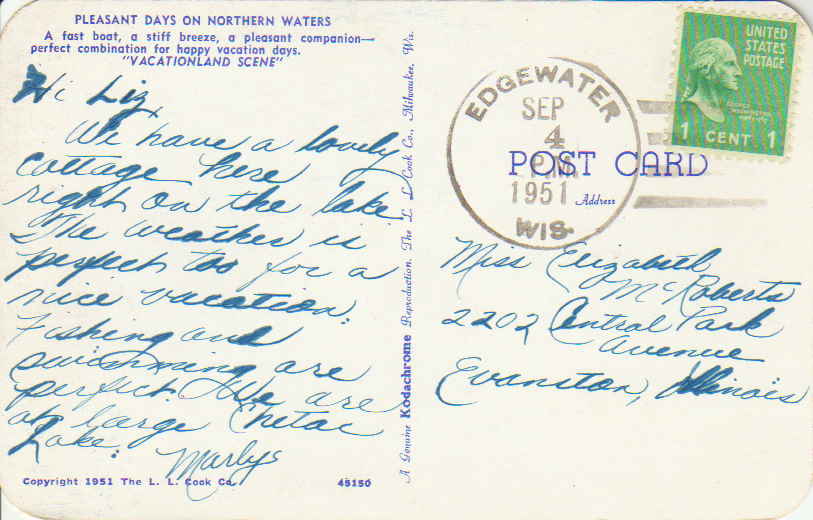 PLEASANT DAYS ON NORTHERN WATERS
A fast boat, a stiff breeze, a pleasant companion—
perfect combination for happy vacation days.
"VACATIONLAND SCENE"
Hi Liz,
We have a lovely
cottage here
right on the lake
The weather is
perfect too for a
nice vacation.
Fishing and
swimming are
perfect. We are
at large Chetac
Lake.
Marlys
Copyright 1951 The L. L. Cook Co.
45150
A Genuine Kodachrome Reproduction, The L. L. Cook Co., Milwaukee, Wis.
EDGEWATER
SEP
4
P.M.
1951
WIS.
UNITED
STATES
POSTAGE
1 CENT 1
POST CARD
Address
Miss Elizabeth
McRoberts
2202 Central Park
Avenue
Evanston, Illinois